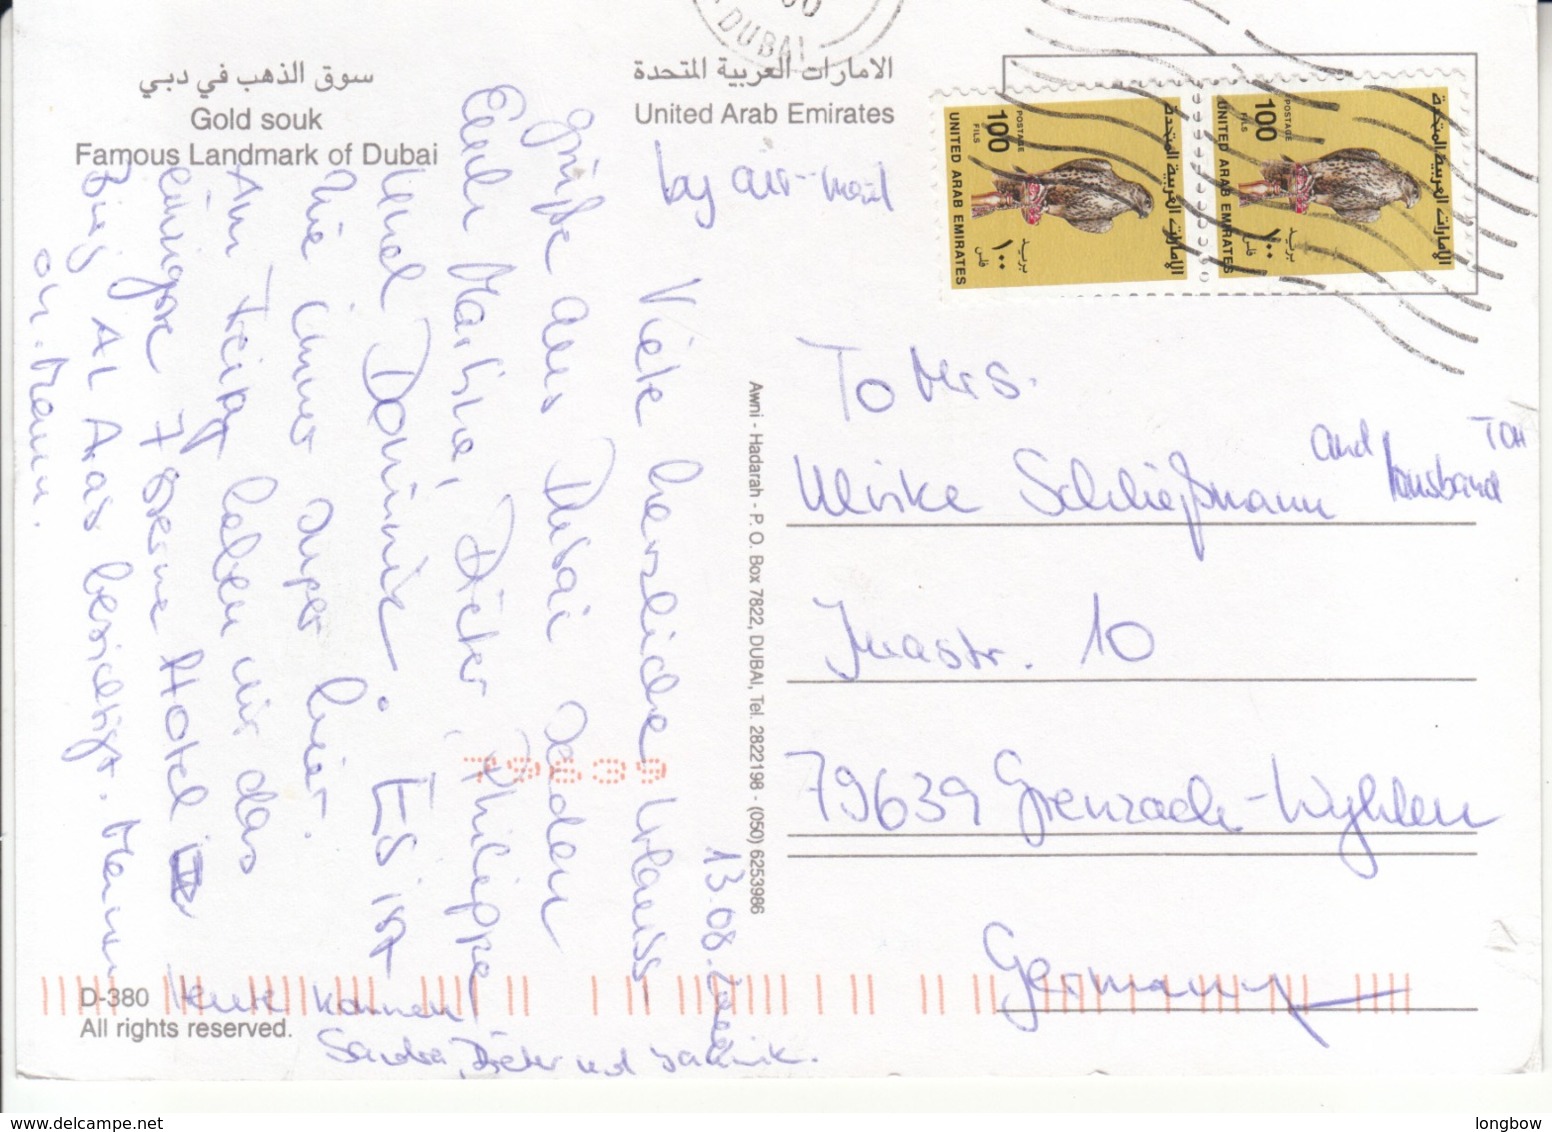 DUBAI
سوق الذهب في دبي
Gold souk
Famous Landmark of Dubai
الامارات العربية المتحدة
United Arab Emirates
by air-mail
POSTAGE
100
FILS
UNITED ARAB EMIRATES
الامارات العربية المتحدة
بريد
١٠٠
فلس
POSTAGE
100
FILS
UNITED ARAB EMIRATES
الامارات العربية المتحدة
بريد
١٠٠
فلس
13.08.
Viele herzliche Urlaubs
grüße aus Dubai senden
Euch Martina, Dieter, Philippe
und Dominik. Es ist
wie immer super hier.
Am Freitag haben wir das
einzige 7 Sterne Hotel
Burj Al Arab besichtigt.
Heute kommen
Sandra, Dieter und Jannik.
Awni - Hadarah - P. O. Box 7822, DUBAI, Tel. 2822198 - (050) 6253986
To Mrs.
Ulrike Schließmann and husband
79639 Grenzach-Wyhlen
Germany
79639
D-380
All rights reserved.
www.delcampe.net
longbow